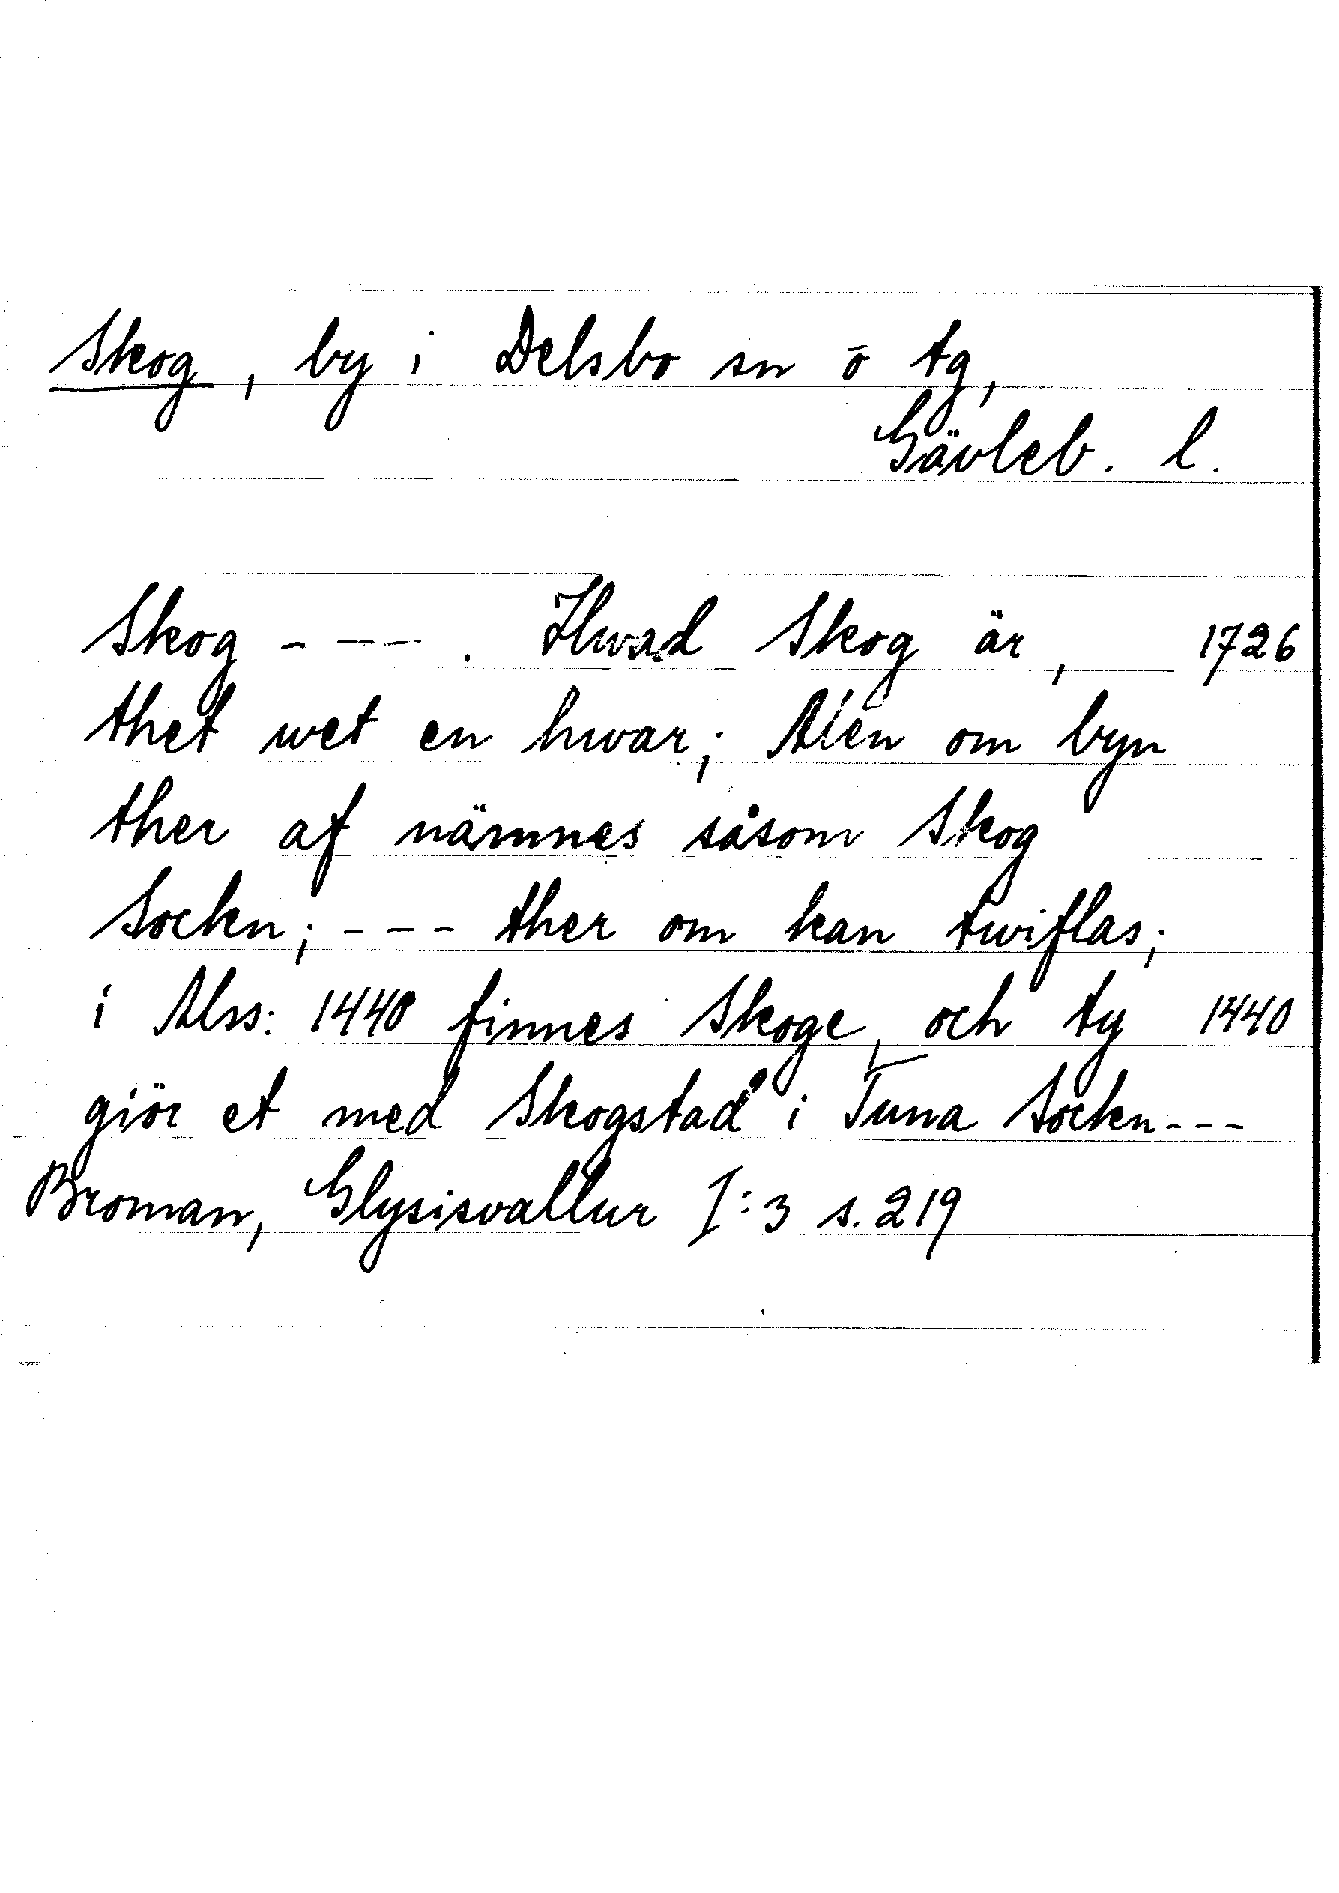 Skog, by i Delsbo sn ö tg,
Gävleb. l.
Skog - --- . Hwad Skog är, 1726
thet wet en hwar; Men om byn
ther af nämnes såsom Skog
Sockn; - - - ther om kan twiflas;
i Mss: 1440 finnes Skoge, och ty 1440
giör et med Skogstad i Tuna Sockn---
Broman, Glysisvallur I:3 s. 219